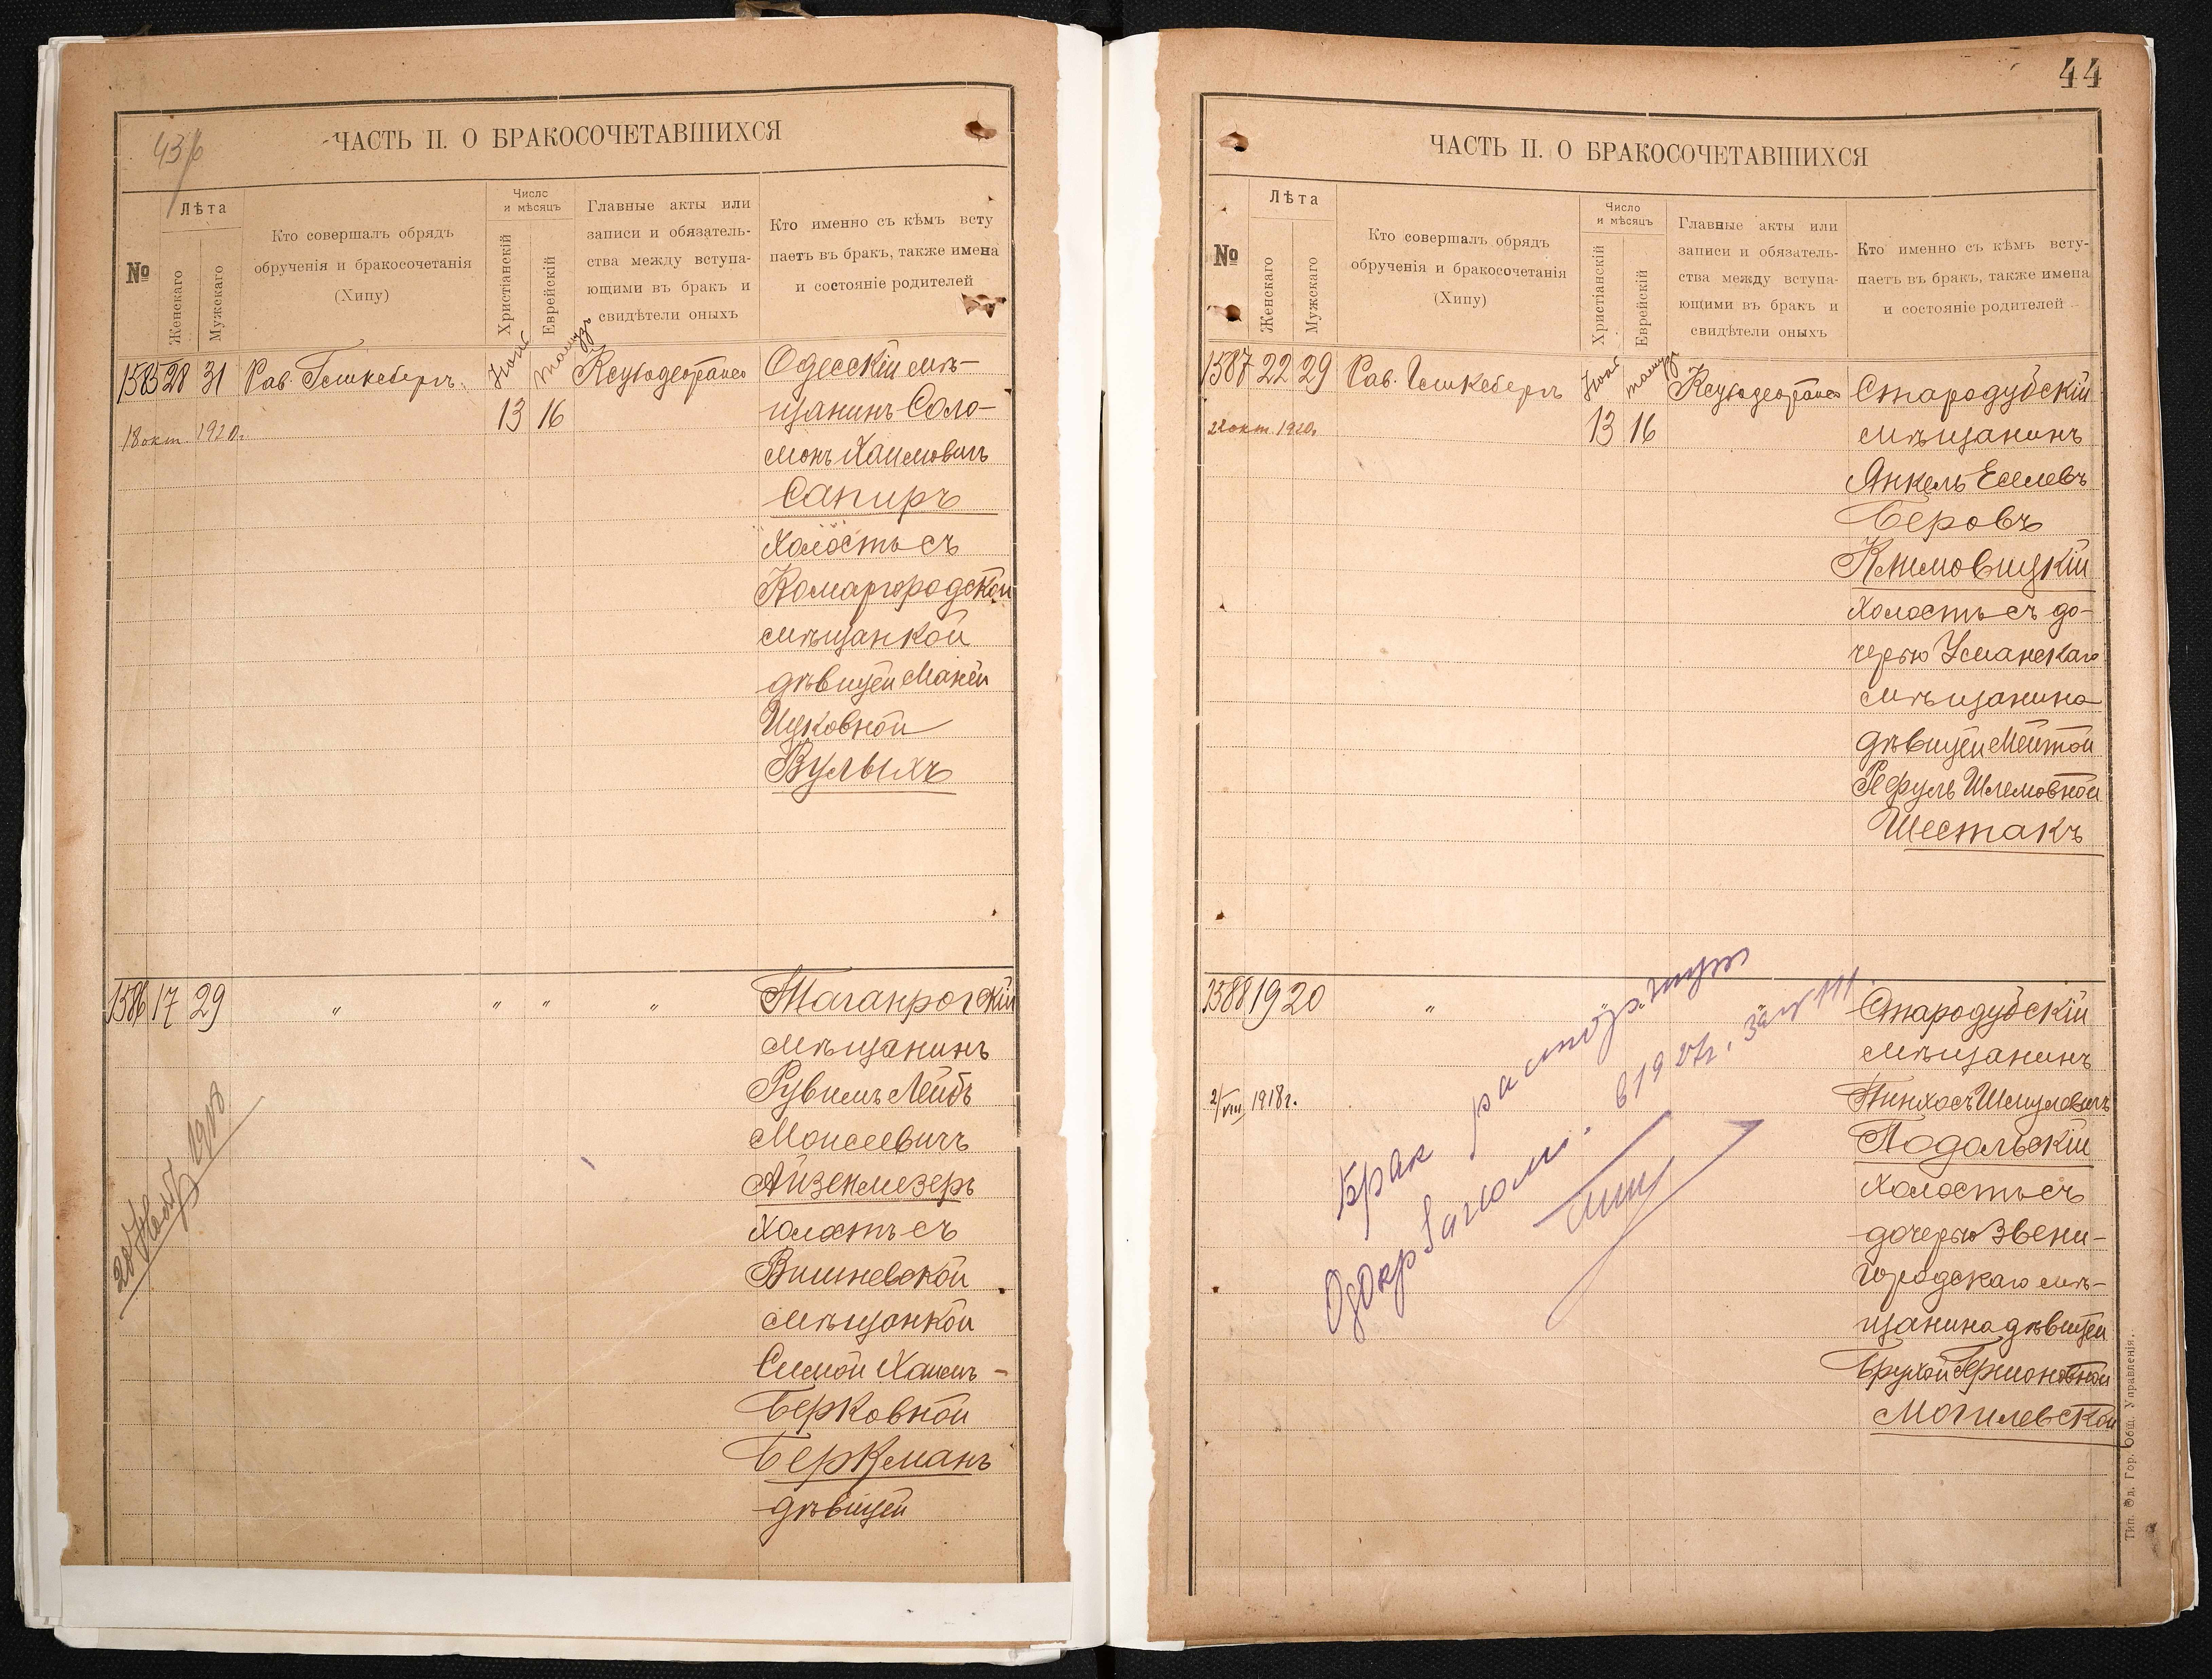 ЧАСТЬ II. О БРАКОСОЧЕТАВШИХСЯ
№
Лѣта
Женскаго
Мужскаго
Кто совершалъ обрядъ
обрученія и бракосочетанія
(Хипу)
Число
и мѣсяцъ
Христіанскій
Еврейскій
Главные акты или
записи и обязатель-
ства между вступа-
ющими въ бракъ и
свидѣтели оныхъ
Кто именно съ кѣмъ всту
паетъ въ бракъ, также имена
и состояніе родителей
1585 28 31 Рав.
13 16
18 окт. 1920г.
Одесскій мѣ-
щанинъ Соло-
монъ Хаимовичъ
Сапиръ
холостъ съ
Комаргородской
мѣщанкой
дѣвицей Маней
Ицковной
Вулыхъ
1586 17 29 " " " "
1918
Таганрогскій
мѣщанинъ
Рувимъ Лейбъ
Моисеевичъ
Айзенмезеръ
холостъ съ
Вишневской
мѣщанкой
Симой Хаимъ-
Берковной
Беркманъ
дѣвицей
44
ЧАСТЬ II. О БРАКОСОЧЕТАВШИХСЯ
№
Лѣта
Женскаго
Мужскаго
Кто совершалъ обрядъ
обрученія и бракосочетанія
(Хипу)
Число
и мѣсяцъ
Христіанскій
Еврейскій
Главные акты или
записи и обязатель-
ства между вступа-
ющими въ бракъ и
свидѣтели оныхъ
Кто именно съ кѣмъ всту-
паетъ въ бракъ, также имена
и состояніе родителей
1587 22 29 Рав.
13 16
22 окт. 1920г.
Стародубскій
мѣщанинъ
Янкель Еселевъ
Беровъ
Климовицкій
холостъ съ до-
черью Уманскаго
мѣщанина
дѣвицей Мейтой
Рефуль Шлемовной
Шестакъ
1588 19 20 " " " "
2/VIII 1918г.
Стародубскій
мѣщанинъ
Пинхосъ Шмулевичъ
Подольскій
холостъ съ
дочерью Звени-
городскаго мѣ-
щанина дѣвицей
Брухой Германовной
Могилевской
Брак расторгнут
в 1927г.
Тип. Од. Гор. Общ. Управленія.